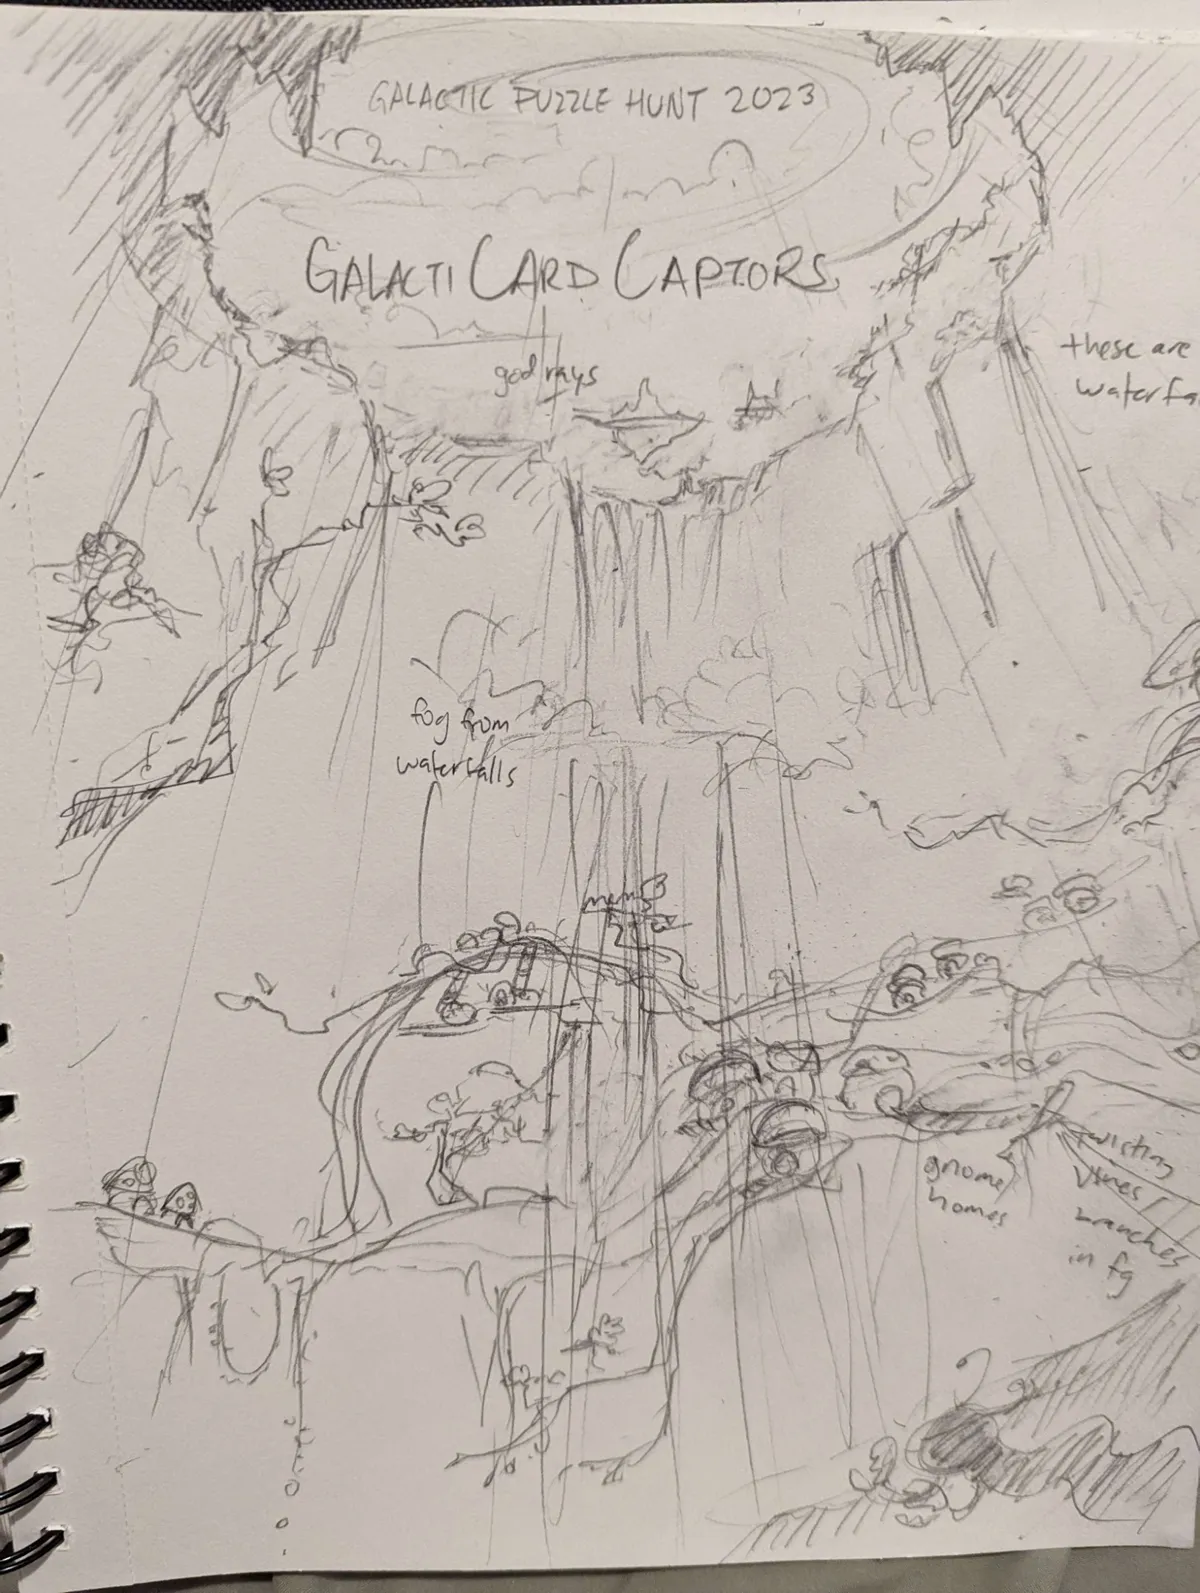 GALACTIC PUZZLE HUNT 2023
GALACTI CARD CAPTORS
god rays
these are
fog from
waterfalls
gnome
homes
twisting
vines /
branches
in fg